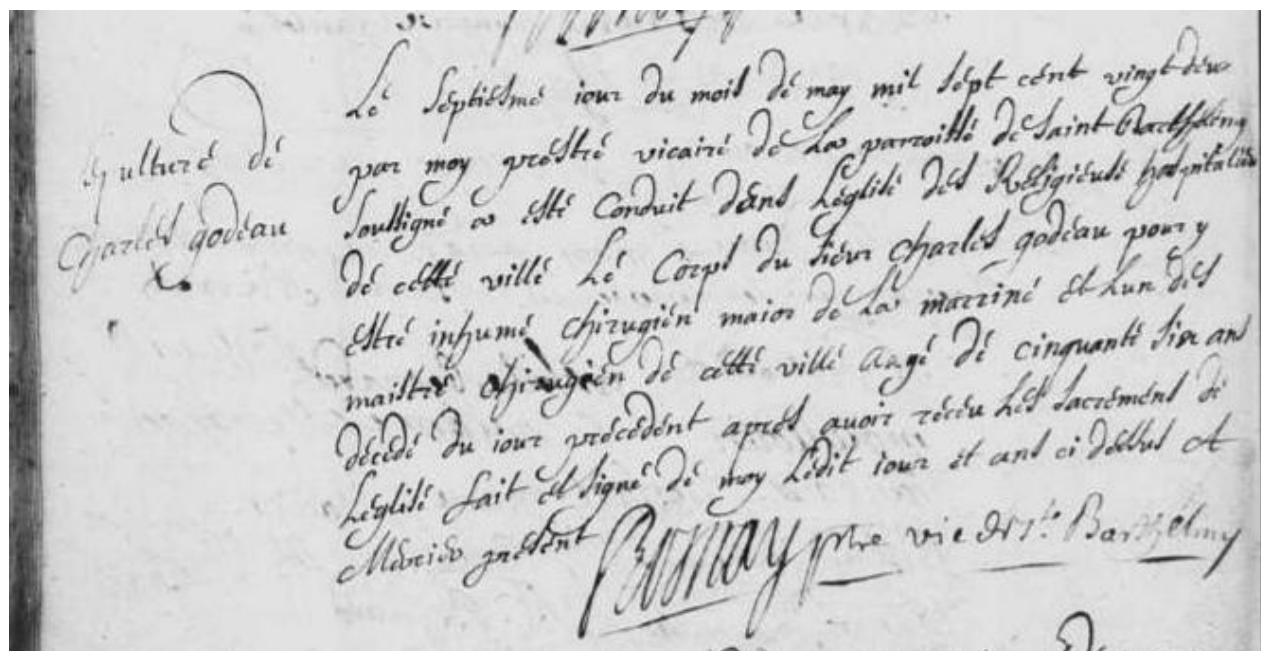 sepulture de
Charles godeau
Le septiesme iour du mois de may mil sept cent vingt deux
par moy prestre vicaire de la parroisse de saint Barthelemy
soussigné a esté conduit dans Leglise des Religieuse hospitaliere
de cette ville Le Corps du sieur Charles godeau pour y
estre inhumé chirugien maior de la marrine et Lun des
maistre chirugien de cette ville aagé de cinquante six ans
decedé du iour precedent apres avoir receu Les sacrement de
Leglise fait et signé de moy Ledit iour et ans ci dessus et
present
Bosmay ptre vic de St. Barthelmy